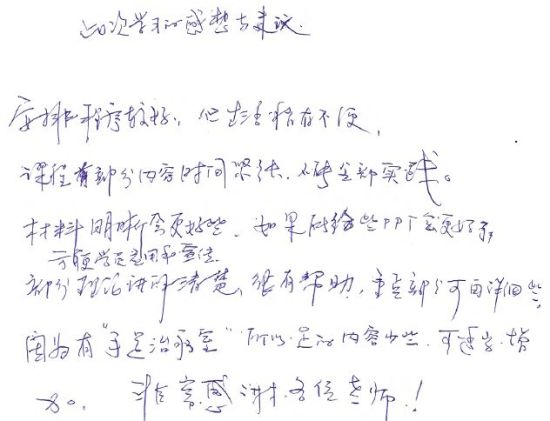 此次学习的感想与建议
安排程序较好,但生活稍有不便,
课程有部分内容时间紧张,不够全部实践。
材料明晰会更好些,如果能给些PPT会更好了,
方便学员运用和宣传
部分理论讲的清楚,很有帮助,重点部分可再详细些,
因为有“手足治疗室”所以足的内容少些,可适当增
加。 非常感谢各位老师!